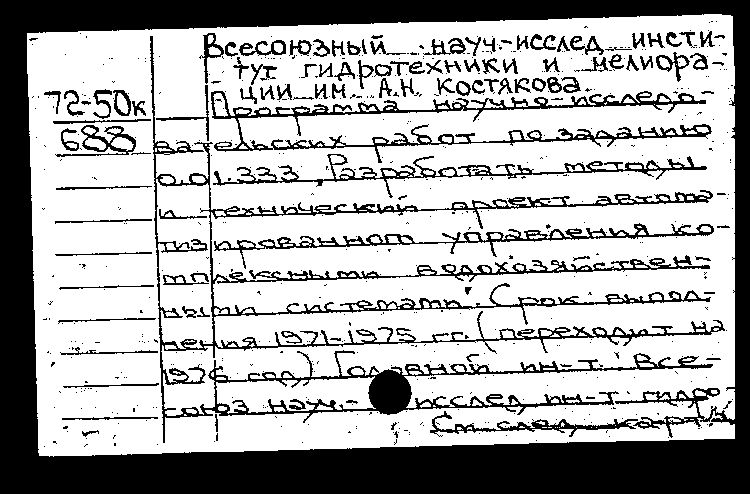 Всесоюзный науч.-исслед инсти-
тут гидротехники и мелиора-
ции им. А.Н. Костякова.
72-50к
Программа научно-исследо-
688
вательских работ по заданию
0.01.333 "Разработать методы
и технический проект автома-
тизированного управления ко-
мплексными водохозяйствен-
ными системами". Срок выпол-
нения 1971-1975 гг. (переходит на
1976 год) Головной ин-т: Все-
союз науч.- исслед ин-т гидро-
См. след. карт